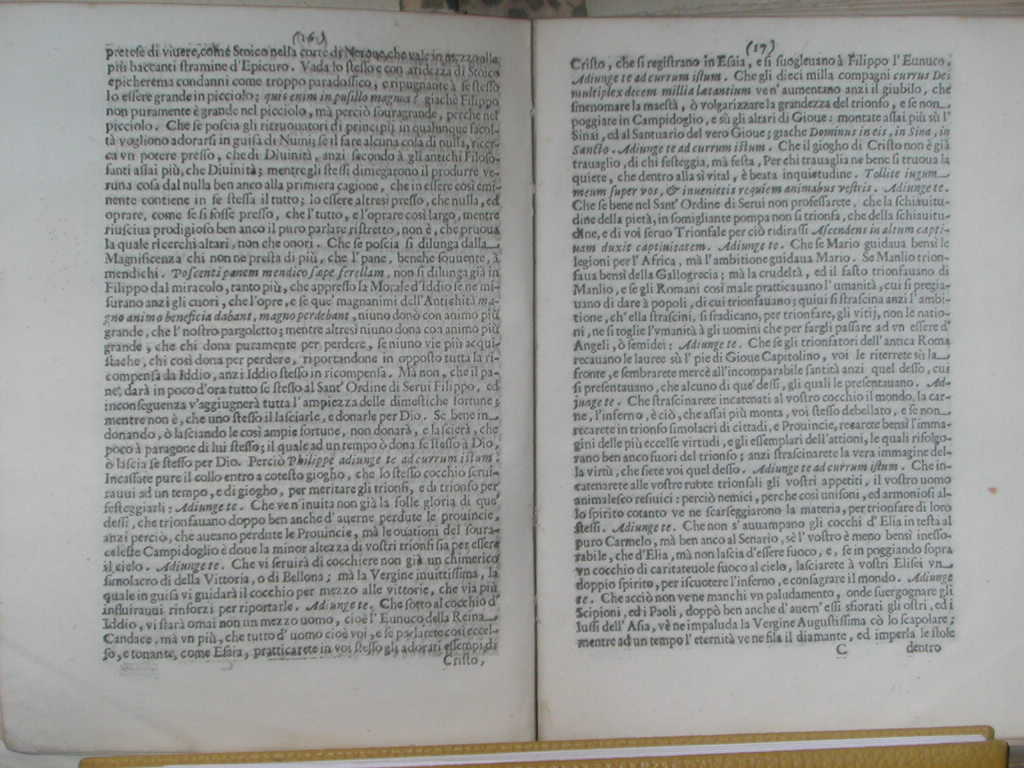 (16)
pretese di viuere, come Stoico nella corte di Nerone, che vale in mezzo alle
più baccanti stramine d'Epicuro. Vada lo stesso e con aridezza di Stoico
epicherema condanni come troppo paradossico, e ripugnante à se stesso
lo essere grande in picciolo; quis enim in pusillo magnus? giachè Filippo
non puramente è grande nel picciolo, mà perciò souragrande, perche nel
picciolo. Che se poscia gli ritruouatori di principij in qualunque facol-
tà vogliono adorarsi in guisa di Numi; se il fare alcuna cosa di nulla, ricer-
ca vn potere presso, che di Diuinità, anzi secondo à gli antichi Filoso-
fanti assai più, che Diuinità; mentre gli stessi dinegarono il produrre ve-
runa cosa dal nulla ben anco alla primiera cagione, che in essere così emi-
nente contiene in se stessa il tutto; lo essere altresi presso, che nulla, ed
oprare, come se si fosse presso, che l'tutto, e l'oprare così largo, mentre
riusciua prodigioso ben anco il puro parlare ristretto, non è, che pruoua
la quale ricerchi altari, non che onori. Che se poscia si dilunga dalla
Magnificenza chi non ne presta di più, che l'pane, benche souuente, à
mendichi. Poscenti panem mendico sæpe ferellam, non si dilunga già in
Filippo dal miracolo, tanto più, che appresso la Morale d'Iddio se ne mi-
surano anzi gli cuori, che l'opre, e se que' magnanimi dell'Antichità ma-
gno animo beneficia dabant, magno perdebant, niuno donò con animo più
grande, che l'nostro pargoletto; mentre altresi niuno dona con animo più
grande, che chi dona puramente per perdere, se niuno vie più acqui-
stache, chi così dona per perdere, riportandone in opposto tutta la ri-
compensa da Iddio, anzi Iddio stesso in ricompensa. Mà non, che il pa-
ne, darà in poco d'ora tutto se stesso al Sant'Ordine di Serui Filippo, ed
inconseguenza v'aggiugnerà tutta l'ampiezza delle dimestiche fortune;
mentre non è, che uno stesso il lasciarle, e donarle per Dio. Se bene in
donando, ò lasciando le così ampie fortune, non donarà, e lascierà, che
poco à paragone di lui stesso; il quale ad un tempo ò dona se stesso à Dio,
ò lascia se stesso per Dio. Perciò Philippe adiunge te ad currum istum.
Incassate pure il collo entro a cotesto giogho, che lo stesso cocchio serui-
rauui ad un tempo, e di giogho, per meritare gli trionfi, e di trionfo per
festeggiarli: Adiunge te. Che ven' inuita non già la folle gloria di que'
dessi, che trionfauano doppo ben anche d'auerne perdute le prouincie,
anzi perciò, che aueano perdute le Prouincie, mà le ouationi del soura-
celeste Campidoglio è doue la minor altezza di vostri trionfi sia per essere
il cielo. Adiunge te. Che vi seruirà di cocchiere non già un chimerico
simolacro di della Vittoria, o di Bellona; mà la Vergine inuittissima, la
quale in guisa vi guidarà il cocchio per mezzo alle vittorie, che via più
influirauui rinforzi per riportarle. Adiunge te. Che sotto al cocchio d'
Iddio, vi starà omai non un mezzo uomo, cioè l'Eunuco della Reina
Candace, mà vn più, che tutto d'uomo cioè voi, e se parlarete così eccel-
so, e tonante, come Esaia, pratticarete in voi stesso gli adorati essempi di
Cristo,
(17)
Cristo, che si registrano in Esaia, e si suogleuano à Filippo l'Eunuco.
Adiunge te ad currum istum. Che gli dieci milla compagni currus Dei
multiplex decem millia latantium ven' aumentano anzi il giubilo, che
smenomare la maestà, ò volgarizzare la grandezza del trionfo, e se non
poggiate in Campidoglio, e sù gli altari di Gioue: montate assai più sù l'
Sinai, ed al Santuario del vero Gioue; giache Dominus in eis, in Sina, in
Sancto. Adiunge te ad currum istum. Che il giogho di Cristo non è già
trauaglio, di chi festeggia, mà festa, Per chi trauaglia ne bene si truoua la
quiete, che dentro alla sì vital, è beata inquietudine. Tollite iugum
meum super vos, & inuenietis requiem animabus vestris. Adiunge te.
Che se bene nel Sant' Ordine di Serui non professarete, che la schiauitu-
dine della pietà, in somigliante pompa non si trionfa, che della schiauitu-
dine, e di voi seruo Trionfale per ciò ridirassi Ascendens in altum capti-
uam duxit captiuitatem. Adiunge te. Che se Mario guidaua bensì le
legioni per l'Africa, mà l'ambitione guidaua Mario. Se Manlio trion-
faua bensì della Gallogrecia; mà la crudeltà, ed il fasto trionfauano di
Manlio, e se gli Romani così male pratticauano l'umanità, cui si pregia-
uano di dare à popoli, di cui trionfauano; quiui si strascina anzi l'ambi-
tione, ch'ella strascini, si sradicano, per trionfare, gli vitij, non le natio-
ni, ne si toglie l'vmanità à gli uomini che per fargli passare ad vn essere d'
Angeli, ò semidei: Adiunge te. Che se gli trionfatori dell'antica Roma
recauano le lauree sù l'pie di Gioue Capitolino, voi le riterrete sù la
fronte, e sembrarete mercè all'incomparabile santità anzi quel desso, cui
si presentauano, che alcuno di que' dessi, gli quali le presentauano. Ad-
iunge te. Che strascinarete incatenati al vostro cocchio il mondo, la car-
ne, l'inferno, e ciò, che assai più monta, voi stesso debellato, e se non
recarete in trionfo simolacri di cittadi, e Prouincie, recarete bensì l'imma-
gini delle più eccelse virtudi, e gli essemplari dell'attioni, le quali rifolgo-
rano ben anco fuori del trionfo; anzi strascinarete la vera immagine del-
la virtù, che siete voi quel desso. Adiunge te ad currum istum. Che in-
catenarete alle vostre rubte trionfali gli vostri appetiti, il vostro uomo
animalesco resiuici: perciò nemici, perche così unisoni, ed armoniosi al-
lo spirito cotanto ve ne scarseggiarono la materia, per trionfare di loro
stessi. Adiunge te. Che non s'auuampano gli cocchi d'Elia in testa al
puro Carmelo, mà ben anco al Senario, sè l'vostro è meno bensì inesso-
rabile, che d'Elia, mà non lascia d'essere fuoco, e, se in poggiando sopra
vn cocchio di caritateuole fuoco al cielo, lasciarete à vostri Elisei vn
doppio spirito, per iscuotere l'inferno, e consagrare il mondo. Adiunge
te. Che acciò non ve ne manchi vn paludamento, onde suergognare gli
Scipioni, ed i Paoli, doppò ben anche d'auem' essi sfiorati gli ostri, ed i
lussi dell'Asia, vè ne impaluda la Vergine Augustissima cò lo scapolare;
mentre ad un tempo l'eternità ve ne fila il diamante, ed imperla le stole
C dentro